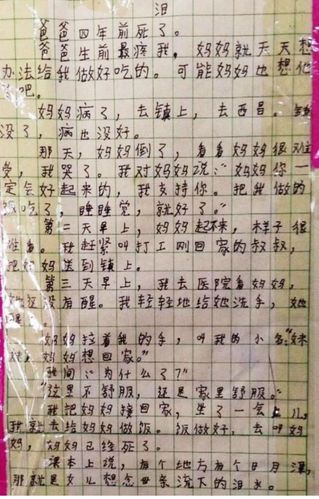 泪
爸爸四年前死了。
爸爸生前最疼我,妈妈就天天想
办法给我做好吃的。可能妈妈也想他
了吧。
妈妈病了,去镇上,去西昌。钱
没了,病也没好。
那天,妈妈倒了,看看妈妈很难
受,我哭了。我对妈妈说:“妈妈你一
定会好起来的,我支持你。把我做的
饭吃了,睡睡觉,就好了。”
第二天早上,妈妈起不来,样子很
难看。我赶紧叫打工刚回家的叔叔,
把妈妈送到镇上。
第三天早上,我去医院看妈妈,
她还没有醒。我轻轻地给她洗手,她
醒了。
妈妈拉着我的手,叫我的小名:“妹
妹,妈妈想回家。”
我问:“为什么了?”
“这里不舒服,还是家里舒服。”
我把妈妈接回家,坐了一会儿,
我就去给妈妈做饭。饭做好,去叫妈
妈,妈妈已经死了。
课本上说,有个地方有个日月潭,
那就是女儿想念母亲流下的泪水。